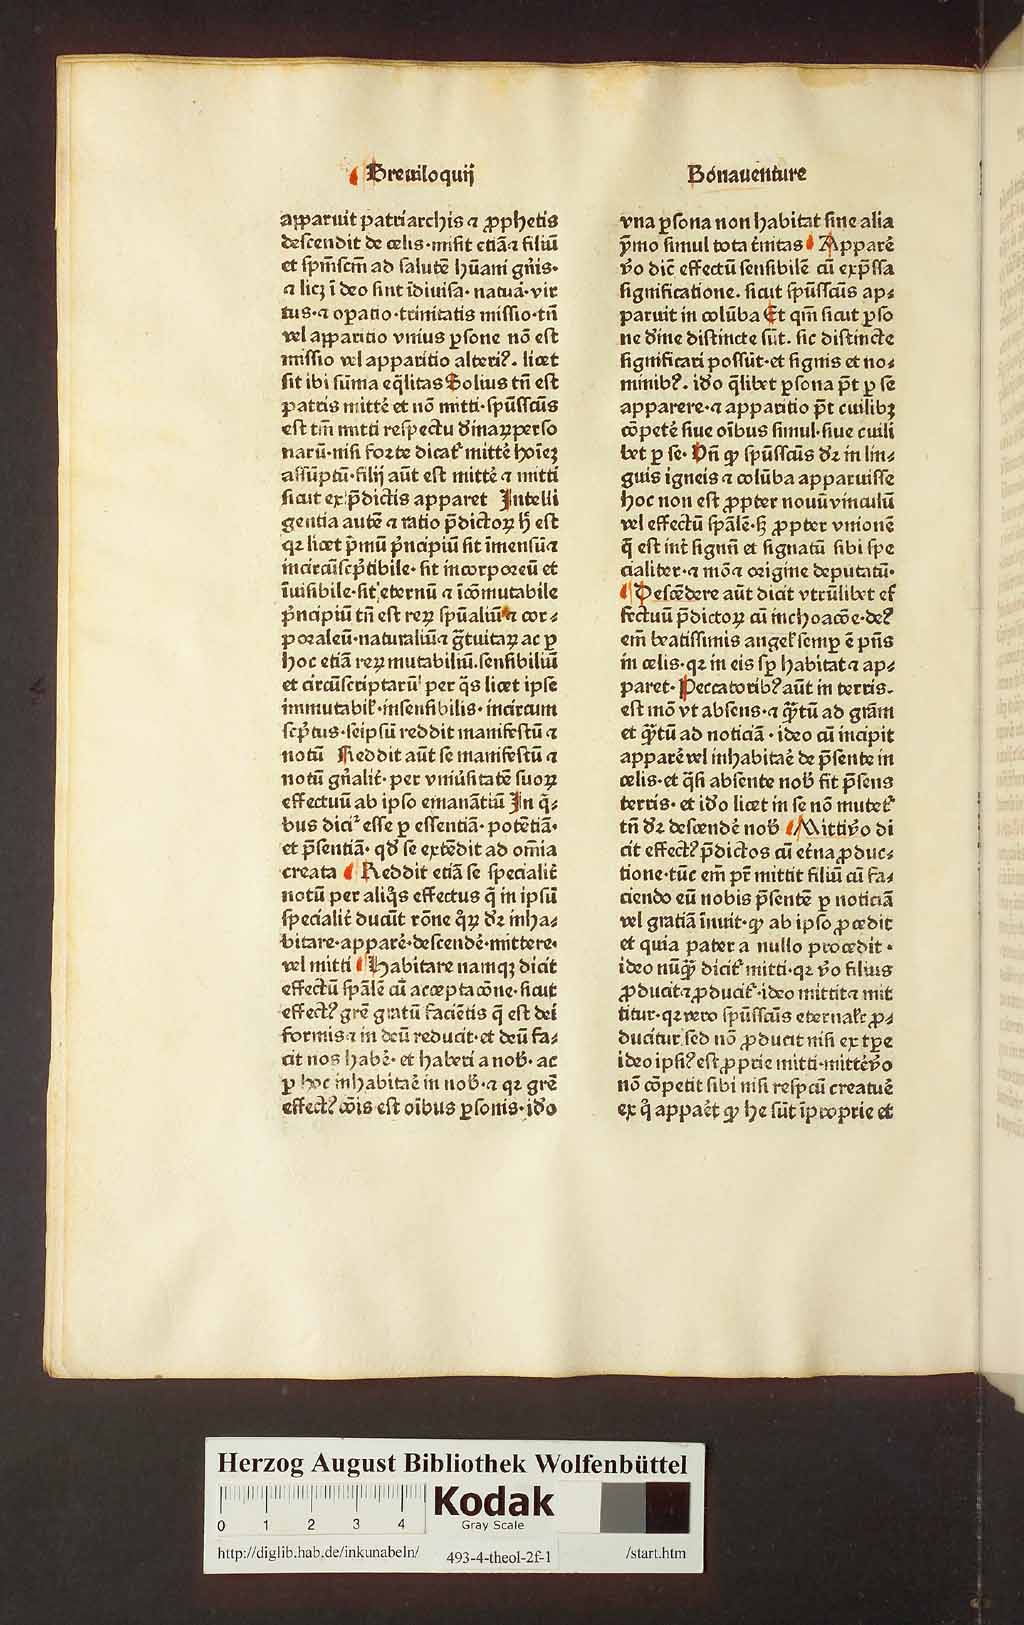 Breuiloquij
Bonauenture
apparuit patriarchis ⁊ ꝓphetis
descendit de celis·misit etiã⁊ filiũ
et sp̃mscm̃ ad salutẽ hũani gñis·
⁊ licꝫ ĩ deo sint ĩdiuisa·natuã·vir
tus·⁊ oꝑatio·trinitatis missio·tñ
vel apparitio vnius ꝑsone nõ est
missio vel apparitio alteriꝰ. licet
sit ibi sũma eq̃litas Solius tñ est
patris mittẽ et nõ mitti·spũssc̃us
est tm̃ mitti respectu diuinaꝝ perso
narũ·nisi forte dicat᷑ mittẽ hoĩeꝫ
assũptũ·filij aũt est mittẽ ⁊ mitti
sicut ex p̃dictis apparet Intelli
gentia autẽ ⁊ ratio p̃dictoꝝ h̃ est
qꝛ licet p̃mũ p̃ncipiũ sit ĩmensũ⁊
incircũscp̃tibile·sit incorporeũ et
ĩuisibile·sit eternũ ⁊ ĩcõmutabile
p̃ncipiũ tñ est reꝝ spũaliũ ⁊ cor⸗
poraleũ·naturaliũ⁊ g̃tuitaꝝ ac ꝑ
hoc etiã reꝝ mutabiliũ.sensibiliũ
et circũscriptarũ per q̃s licet ipse
immutabil᷑·insensibilis·incircum
scp̃tus·seipsũ reddit manifestũ ⁊
notũ Reddit aũt se manifestũ ⁊
notũ gñalit̃·per vniũsitatẽ suoꝝ
effectuũ ab ipso emanãtiũ In q̃⸗
bus dicit᷑ esse ꝑ essentiã·potẽtiã·
et p̃sentiã·qď se extẽdit ad om̃ia
creata Reddit etiã se specialit̃
notũ per aliq̃s effectus q̃ in ipsũ
specialit̃ ducũt rõne q̃ꝝ dꝛ inha⸗
bitare·apparẽ·descendẽ·mittere·
vel mitti Habitare namqꝫ dicit
effectũ spãlẽ cũ acceptacõne·sicut
effectꝰ grẽ gratũ faciẽtis q̃ est dei
formis⁊ in deũ reducit·et deũ fa⸗
cit nos habẽ·et haberi a nob̃·ac
ꝑ hoc inhabitaẽ in nob̃·⁊ qꝛ grẽ
effectꝰ cõis est oĩbus ꝑsonis·iď̃o
vna ꝑsona non habitat sine alia
ỹmo simul tota t̃nitas Apparẽ
ṽo dic̃ effectũ sensibilẽ cũ exp̃ssa
significatione. sicut spũssc̃us ap⸗
paruit in colũba Et qm̃ sicut ꝑso
ne diuine distincte sũt. sic distincte
significari possũt·et signis et no⸗
minibꝰ. iďo q̃libet ꝑsona p̃t ꝑ se
apparere·⁊ apparitio p̃t cuilibꝫ
cõpetẽ siue oĩbus simul·siue cuili
bet ꝑ se·Vñ ꝙ spũssc̃us dꝛ in lin⸗
guis igneis ⁊ colũba apparuisse
hoc non est ꝓpter nouũ vinculũ
vel effectũ spãlẽ·sꝫ ꝓpter vnionẽ
q̃ est int̃ signũ et signatũ sibi spe
cialiter·⁊ mõ⁊ origine deputatũ·
Descẽdere aũt dicit vtrũlibet ef
fectuũ p̃dictoꝝ cũ inchoacõe·deꝰ
em̃ beatissimis angel᷑ semꝑ ẽ p̃ns
in celis·qꝛ in eis sꝑ habitat ⁊ ap⸗
paret·Peccatoribꝰ aũt in terris.
est mõ vt absens·⁊ q̃tũ ad grãm
et q̃tũ ad noticiã·ideo cũ incipit
apparẽ vel inhabitaẽ de p̃sente in
celis·et q̃si absente nob̃ fit p̃sens
terris·et iďo licet in se nõ mutet᷑
tñ dꝛ descendẽ nob̃ Mitti ṽo di
cit effectꝰ p̃dictos cũ et̃na ꝓduc⸗
tione·tũc em̃ pr̃ mittit filiũ cũ fa⸗
ciendo eũ nobis p̃sentẽ ꝑ noticiã
vel gratiã ĩnuit·ꝙ ab ipso ꝓcedit
et quia pater a nullo procedit·
ideo nũꝙ̃ dicit᷑ mitti·qꝛ ṽo filius
ꝓducit⁊ ꝓducit᷑·ideo mittit⁊ mit
titur·qꝛ vero spũssc̃us eternalr̃ ꝓ⸗
ducitur sed nõ ꝓducit nisi ex tꝑe
ideo ipsiꝰ est ꝓprie mitti·mittẽ ṽo
nõ cõpetit sibi nisi respcũ creatuẽ
ex q̃ appaẽt ꝙ he sũt ĩproprie et
Herzog August Bibliothek Wolfenbüttel
0 1 2 3 4
Kodak
Gray Scale
http://diglib.hab.de/inkunabeln/ 493-4-theol-2f-1 /start.htm